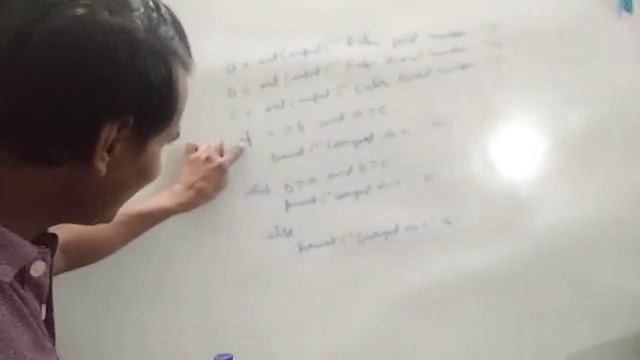 a = int(input("Enter first number
b = int(input("Enter second number
c = int(input("Enter third number
if a > b and a > c
print("Largest no =
elif b > a and b > c
print("Largest no =
else
print("Largest no =